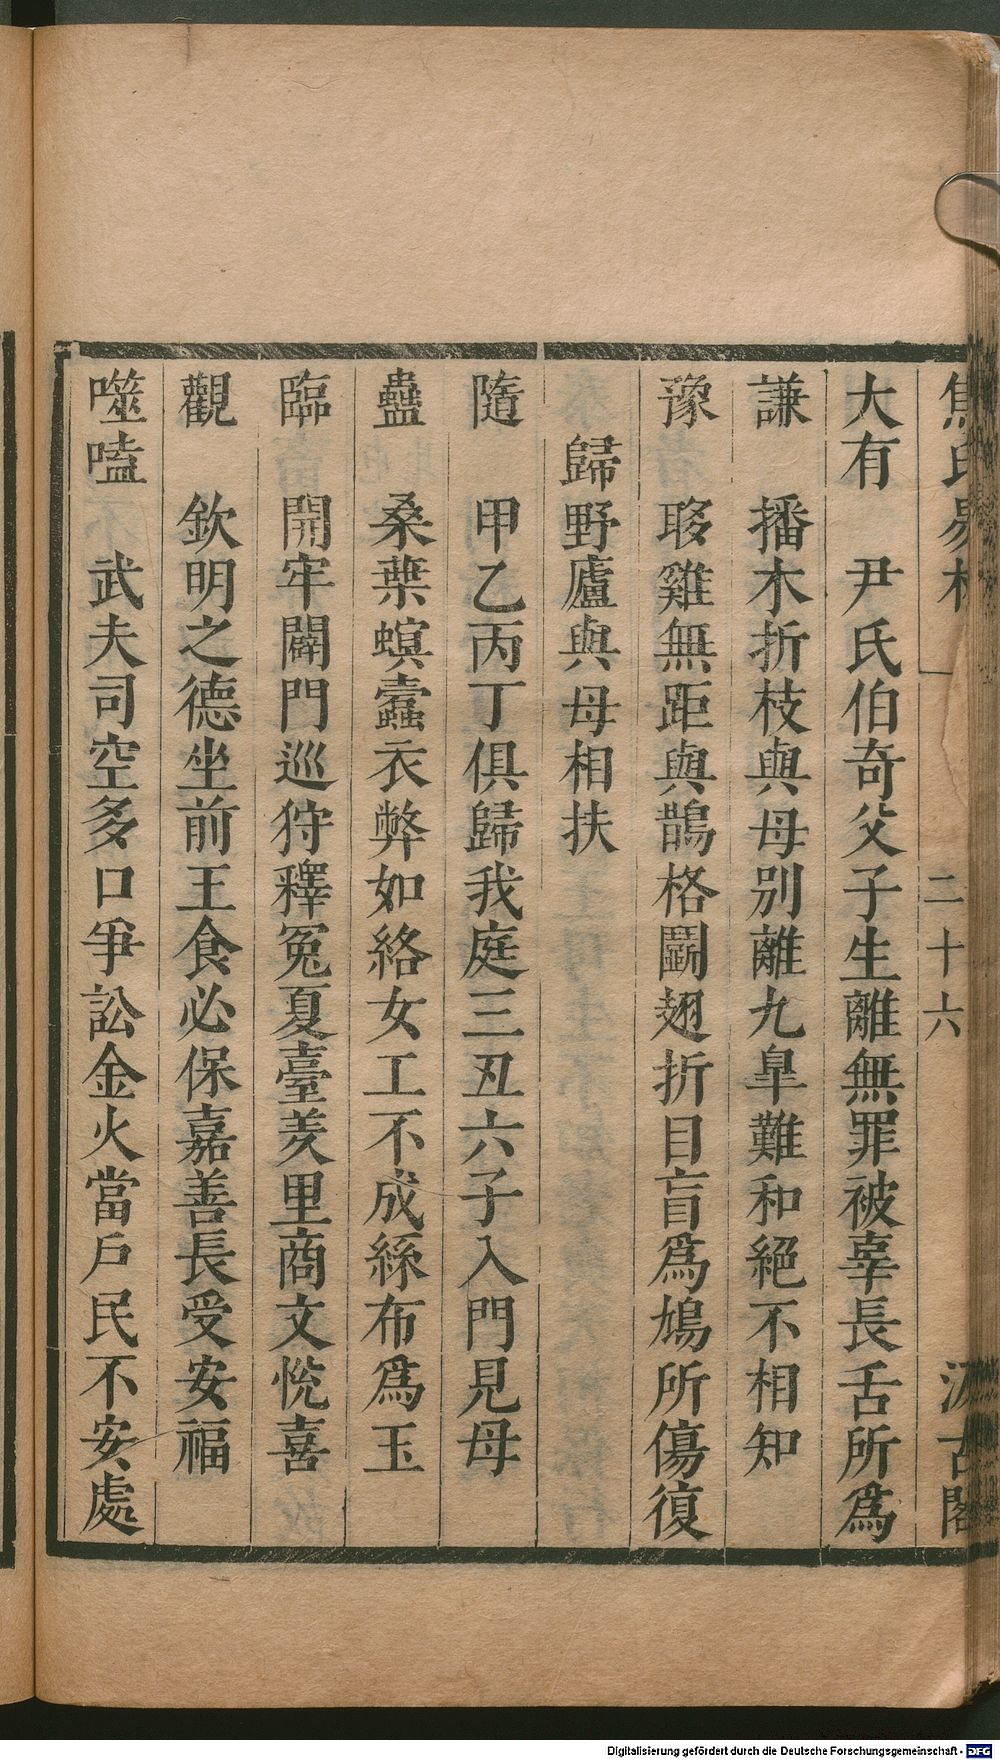 焦氏易林 二十六 汲古閣
大有 尹氏伯奇父子生離無罪被辜長舌所爲
謙 播木折枝與母別離九皐難和絕不相知
豫 䎺雞無距與鵲格鬭翅折目盲爲鳩所傷復
歸野廬與母相扶
隨 甲乙丙丁俱歸我庭三丑六子入門見母
蠱 桑葉螟蠹衣弊如絡女工不成絲布爲玉
臨 開牢闢門巡狩釋冤夏臺羑里商文悅喜
觀 欽明之德坐前王食必保嘉善長受安福
噬嗑 武夫司空多口爭訟金火當戶民不安處
Digitalisierung gefördert durch die Deutsche Forschungsgemeinschaft - DFG